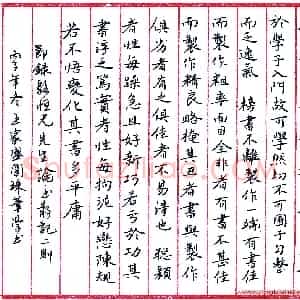 於學子入門故可學然不可囿于勾整
而乏逸氣 榜書不離製作一端有書佳
而製作粗率面目全非者有書不甚佳
而製作精良略掩其丑者書與製作
俱劣者有之俱佳者不易得也 聰穎
者性每躁急且好新巧若於功其
書浮乏篤實者性每拘泥好戀陳規
若不悟變化其書多平庸
節錄恒光先生論書散記二則
年冬王家筆學書